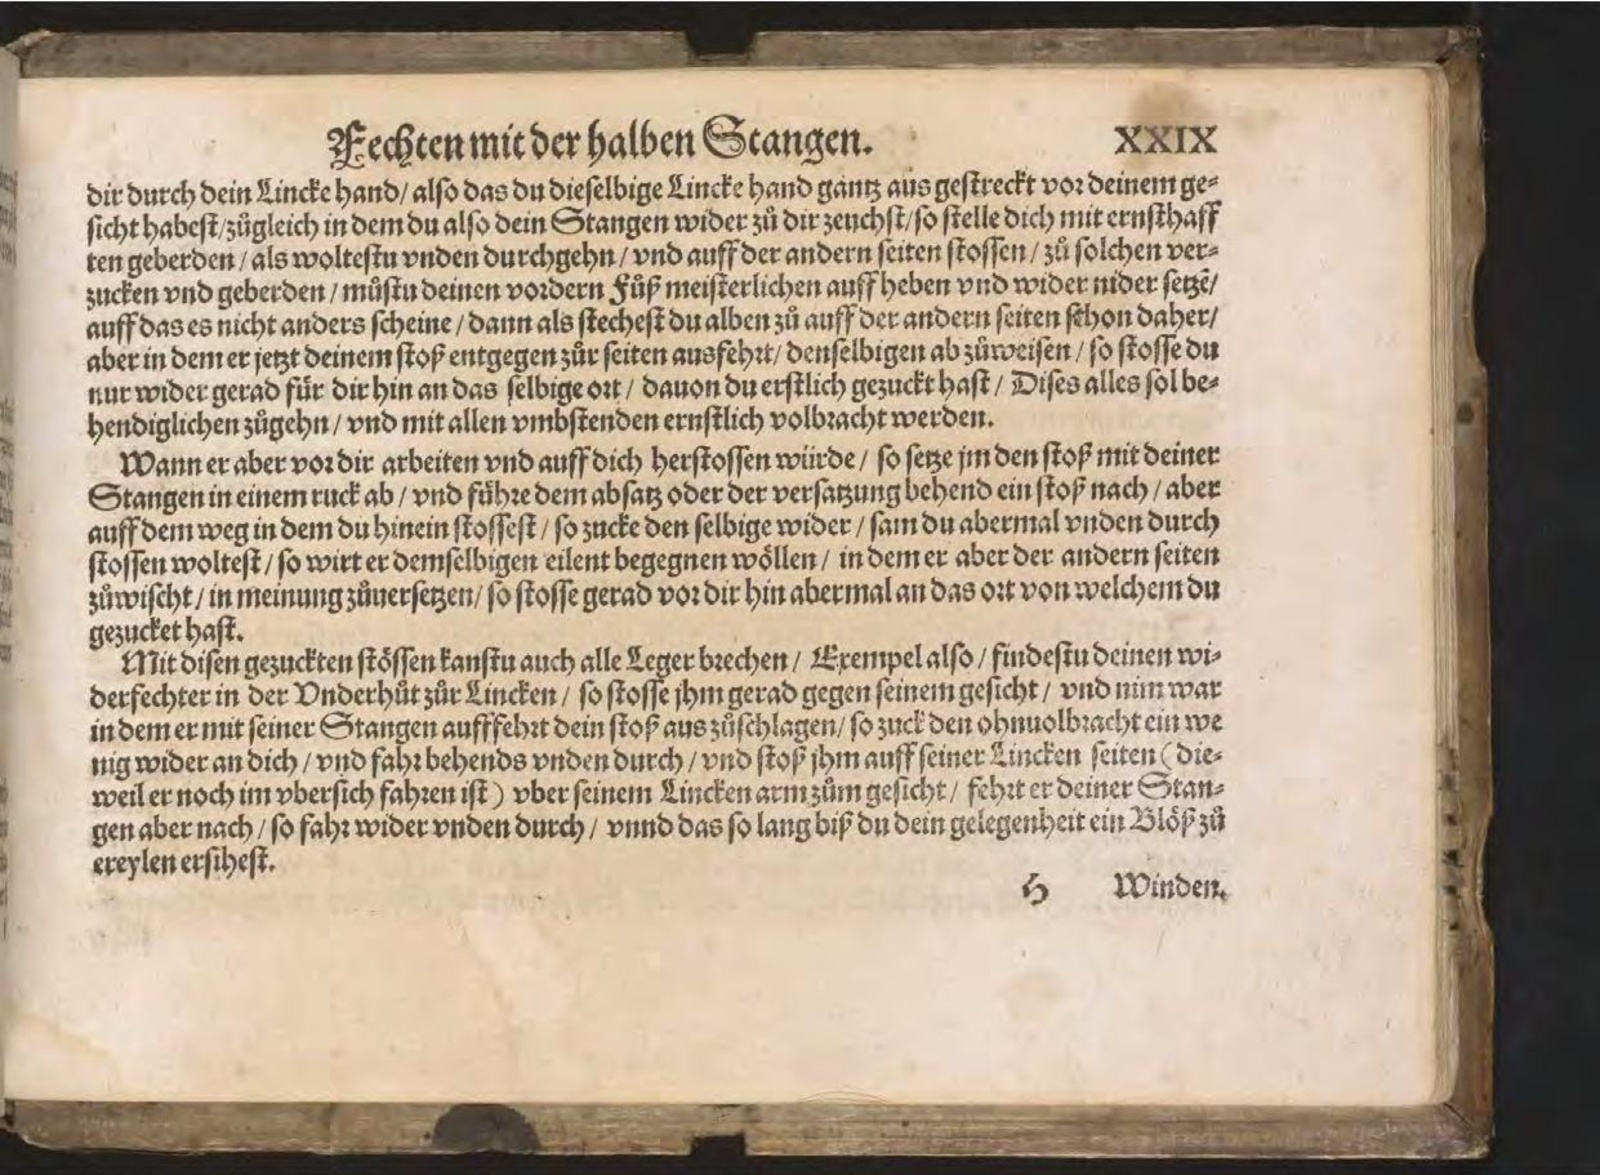 Fechten mit der halben Stangen. XXIX
dir durch dein Lincke hand / also das du dieselbige Lincke hand gantz aus gestreckt vor deinem ge⸗
sicht habest / zůgleich in dem du also dein Stangen wider zů dir zeuchst / so stelle dich mit ernsthaff
ten geberden / als woltestu vnden durchgehn / vnd auff der andern seiten stossen / zů solchen ver⸗
zucken vnd geberden / můstu deinen vordern Fůß meisterlichen auff heben vnd wider nider setzē /
auff das es nicht anders scheine / dann als stechest du alben zů auff der andern seiten schon daher /
aber in dem er jetzt deinem stoß entgegen zůr seiten ausfehrt / denselbigen ab zůweisen / so stosse du
nur wider gerad für dir hin an das selbige ort / dauon du erstlich gezuckt hast / Dises alles sol be⸗
hendiglichen zůgehn / vnd mit allen vmbstenden ernstlich volbracht werden.
Wann er aber vor dir arbeiten vnd auff dich herstossen würde / so setze jm den stoß mit deiner
Stangen in einem ruck ab / vnd führe dem absatz oder der versatzung behend ein stoß nach / aber
auff dem weg in dem du hinein stossest / so zucke den selbige wider / sam du abermal vnden durch
stossen woltest / so wirt er demselbigen eilent begegnen wöllen / in dem er aber der andern seiten
zůwischt / in meinung zůuersetzen / so stosse gerad vor dir hin abermal an das ort von welchem du
gezucket hast.
Mit disen gezuckten stössen kanstu auch alle Leger brechen / Exempel also / findestu deinen wi⸗
derfechter in der Vnderhůt zůr Lincken / so stosse jhm gerad gegen seinem gesicht / vnd nim war
in dem er mit seiner Stangen aufffehrt dein stoß aus zůschlagen / so zuck den ohnuolbracht ein we
nig wider an dich / vnd fahr behends vnden durch / vnd stoß jhm auff seiner Lincken seiten ( die⸗
weil er noch im vbersich fahren ist ) vber seinem Lincken arm zům gesicht / fehrt er deiner Stan⸗
gen aber nach / so fahr wider vnden durch / vnnd das so lang biß du dein gelegenheit ein Blöß zů
ereylen ersihest.
H Winden.